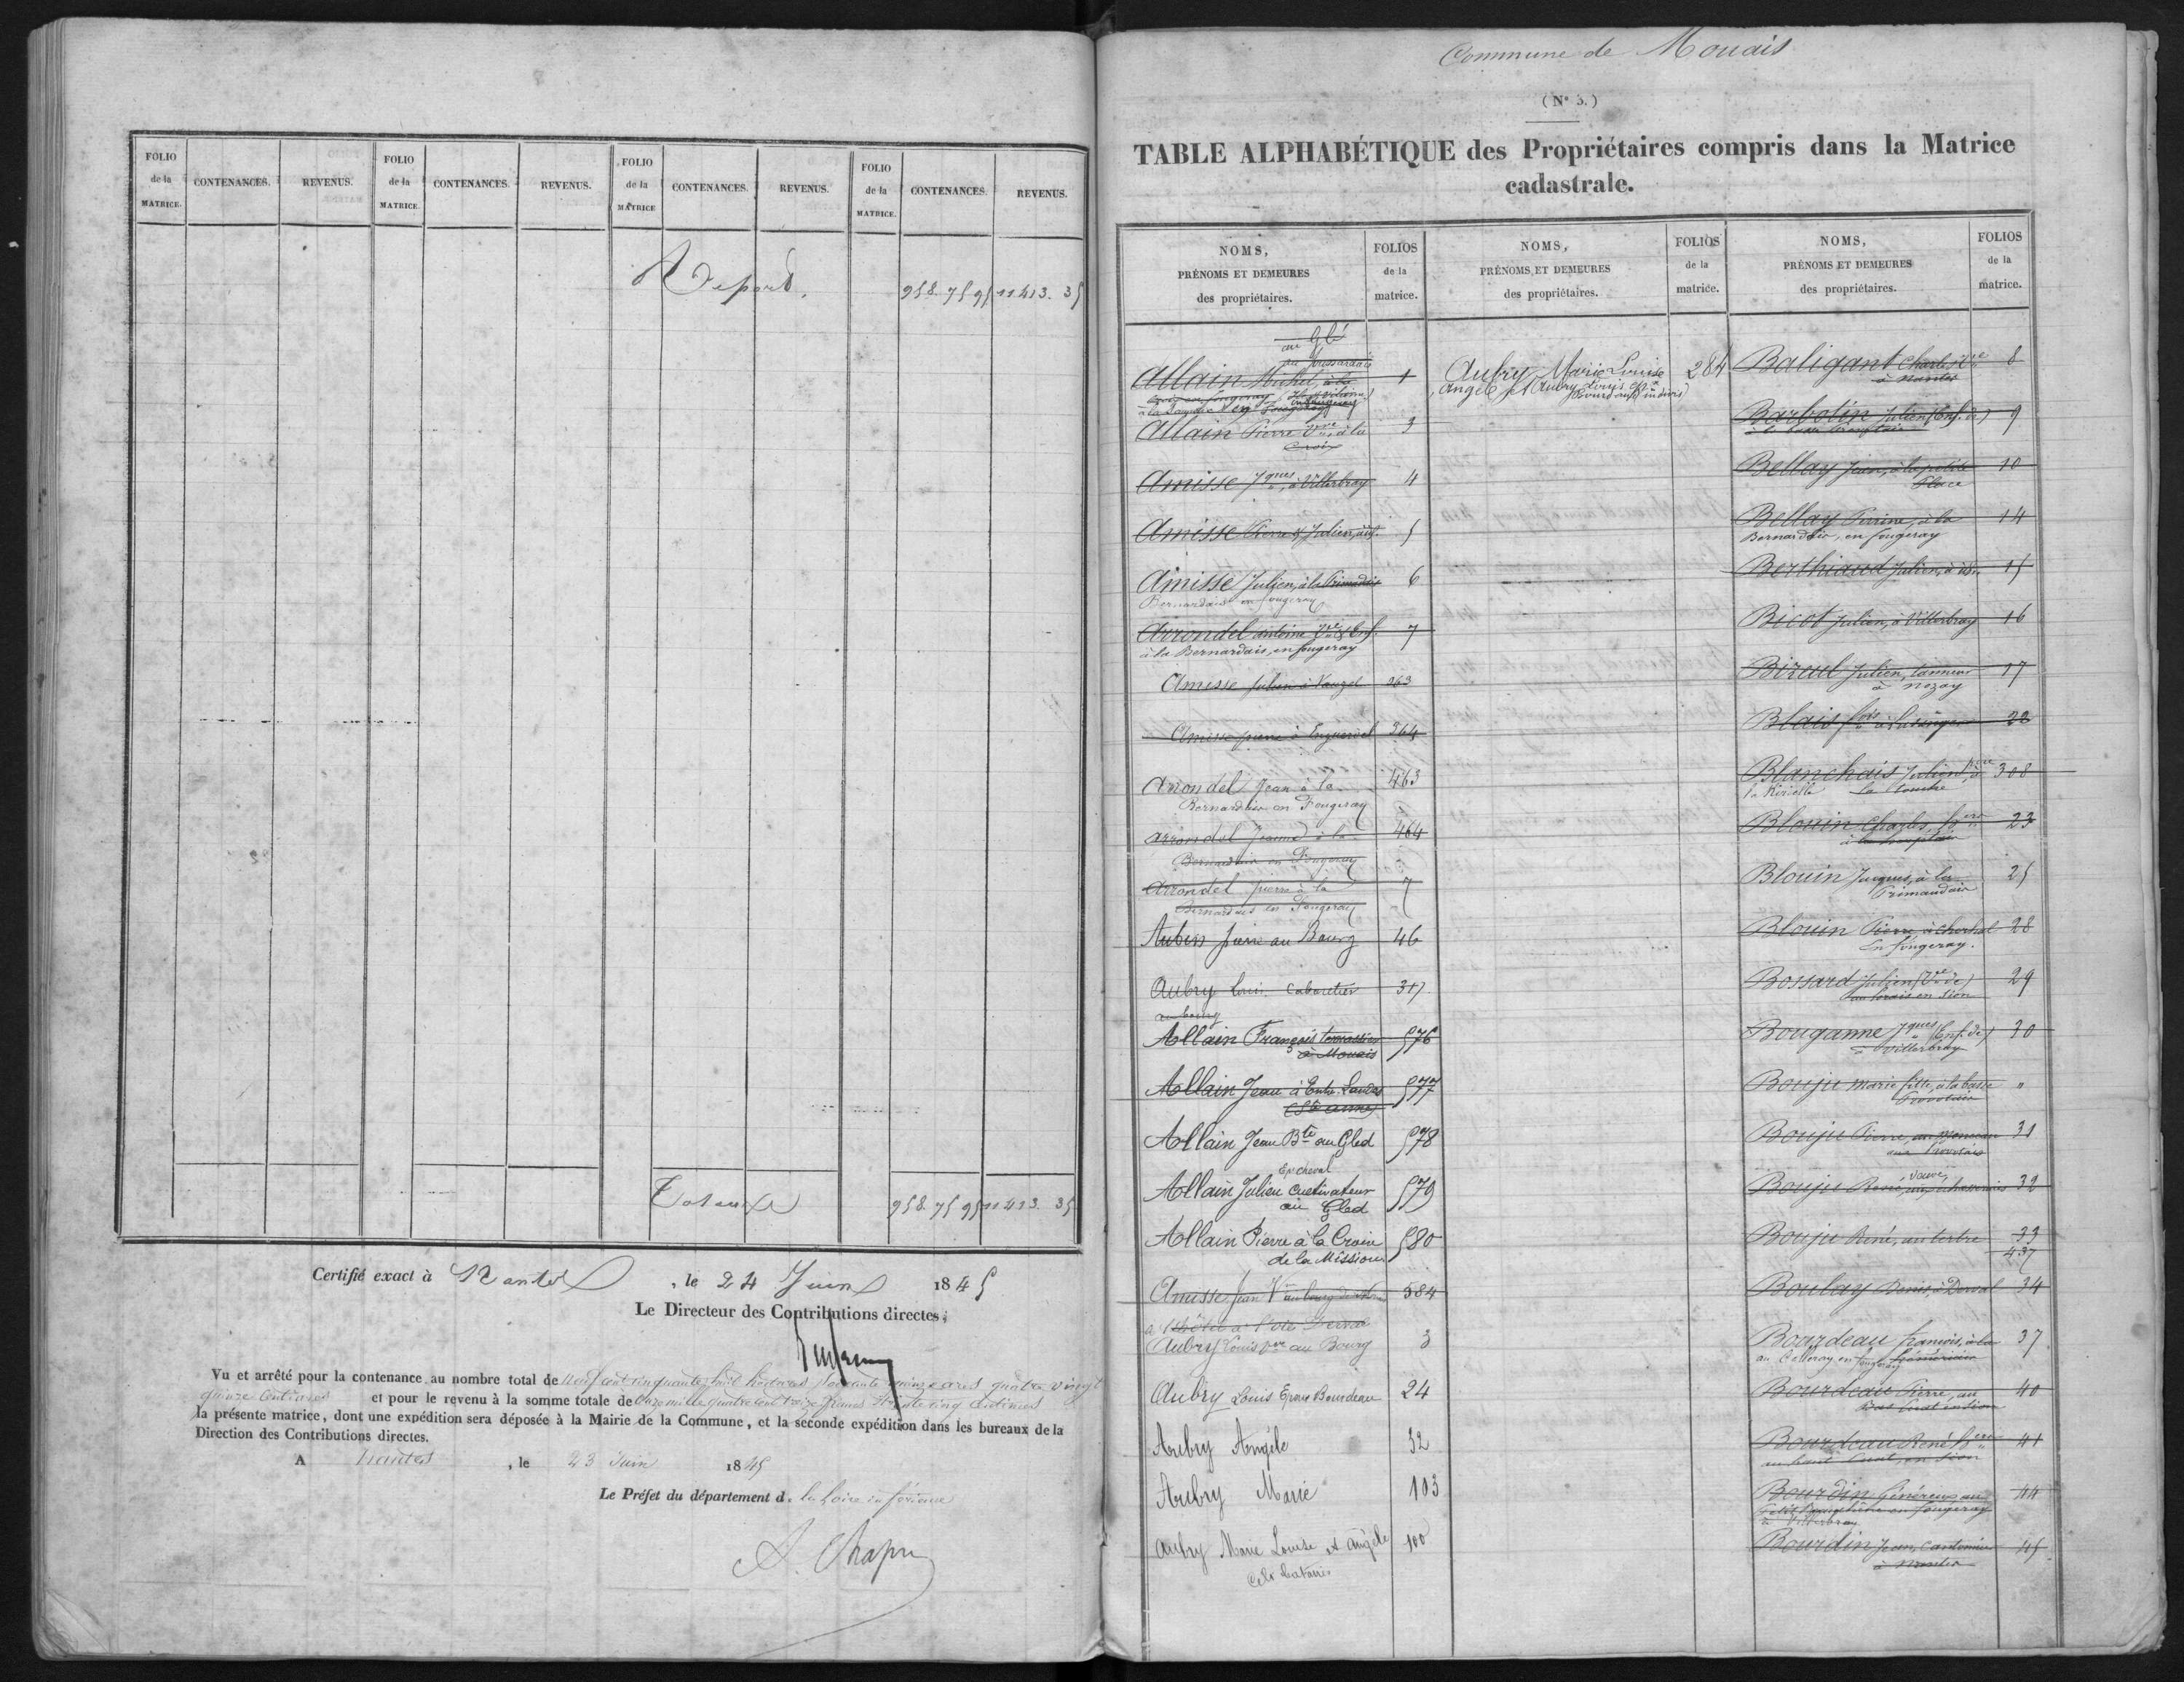 FOLIO de la MATRICE.
CONTENANCES.
REVENUS.
FOLIO de la MATRICE.
CONTENANCES.
REVENUS.
FOLIO de la MATRICE
CONTENANCES.
REVENUS.
FOLIO de la MATRICE.
CONTENANCES.
REVENUS.
Report. 958. 75 95 11413. 35
Totaux 958. 75 95 11413. 35
Certifié exact à Nantes, le 24 Juin 1845
Le Directeur des Contributions directes,
Vu et arrêté pour la contenance au nombre total de neuf cent cinquante huit hectares soixante quinze ares quatre vingt
quinze centiares et pour le revenu à la somme totale de onze mille quatre cent treize francs trente cinq centimes
la présente matrice, dont une expédition sera déposée à la Mairie de la Commune, et la seconde expédition dans les bureaux de la
Direction des Contributions directes.
A Nantes, le 23 Juin 1845
Le Préfet du département d. la Loire inférieure
A. Chaper
Commune de Mouais
(N° 3.)
TABLE ALPHABÉTIQUE des Propriétaires compris dans la Matrice
cadastrale.
NOMS, PRÉNOMS ET DEMEURES des propriétaires.
FOLIOS de la matrice.
NOMS, PRÉNOMS ET DEMEURES des propriétaires.
FOLIOS de la matrice.
NOMS, PRÉNOMS ET DEMEURES des propriétaires.
FOLIOS de la matrice.
au Glé
Allain Michel, à la 1
Allain Pierre Vve, à la 3
Croix
Amisse Jques, à Villerbray 4
Amisse Pierre & Julien, id. 5
Amisse Julien, à la Primaudais 6
Bernardais en fougeray
Arrondel antoine Ve & Enf. 7
à la Bernardais, en fougeray
Amisse Julien à 363
Amisse pierre à 364
Arrondel Jean à la 463
Bernardais en Fougeray
arrondel Jeanne à la 464
Bernardais en Fougeray
Arrondel pierre à la 7
Bernardais en Fougeray
Aubin pierre au Bourg 46
Aubry Louis. Cabaretier 317
au bourg
Allain François terrassier 576
à Mouais
Allain Jean à Entre Landes 577
(Ste anne)
Allain Jean Bte au Gled 578
Allain Julien Cultivateur 579
au Gled
Allain Pierre à la Croix 580
de la Mission
Amisse Jean 584
Aubry Louis au Bourg 3
Aubry Louis Epoux Bourdeau 24
Aubry Angèle 32
Aubry Marie 103
Aubry Marie Louise et Angèle 100
Aubry Marie Louise 284
Angèle et Aubry Louis
Baligant Charles 8
à Nantes
Barbotin Julien (Enf. de) 9
Bellay Jean, à la petite 10
Place
Bellay Perrine, à la 14
Bernardais, en fougeray
Berthiaud Julien, à 15
Bicot Julien, à Villerbray 16
Bireul Julien, tanneur 17
à Nozay
Blais 22
Blanchais Julien 308
La Touche
Blouin Charles 23
Blouin Jacques, à la 25
Primaudais
Blouin Pierre, à 28
En fougeray.
Bossard Julien (Ve de) 29
en Sion
Bouganne Jques (Enf. de) 30
à Villerbray
Bouju Marie fille, à la basse "
Bouju Pierre, 31
Bouju René, 32
Bouju René, au tertre 33
437
Boulay Denis à Derval 34
Bourdeau françois, à la 37
Bourdeau Pierre, au 40
Bourdeau René 41
en Sion
Bourdin Généreux au 44
en fougeray
à Villerbray
Bourdin Jean, Cantonnier 45